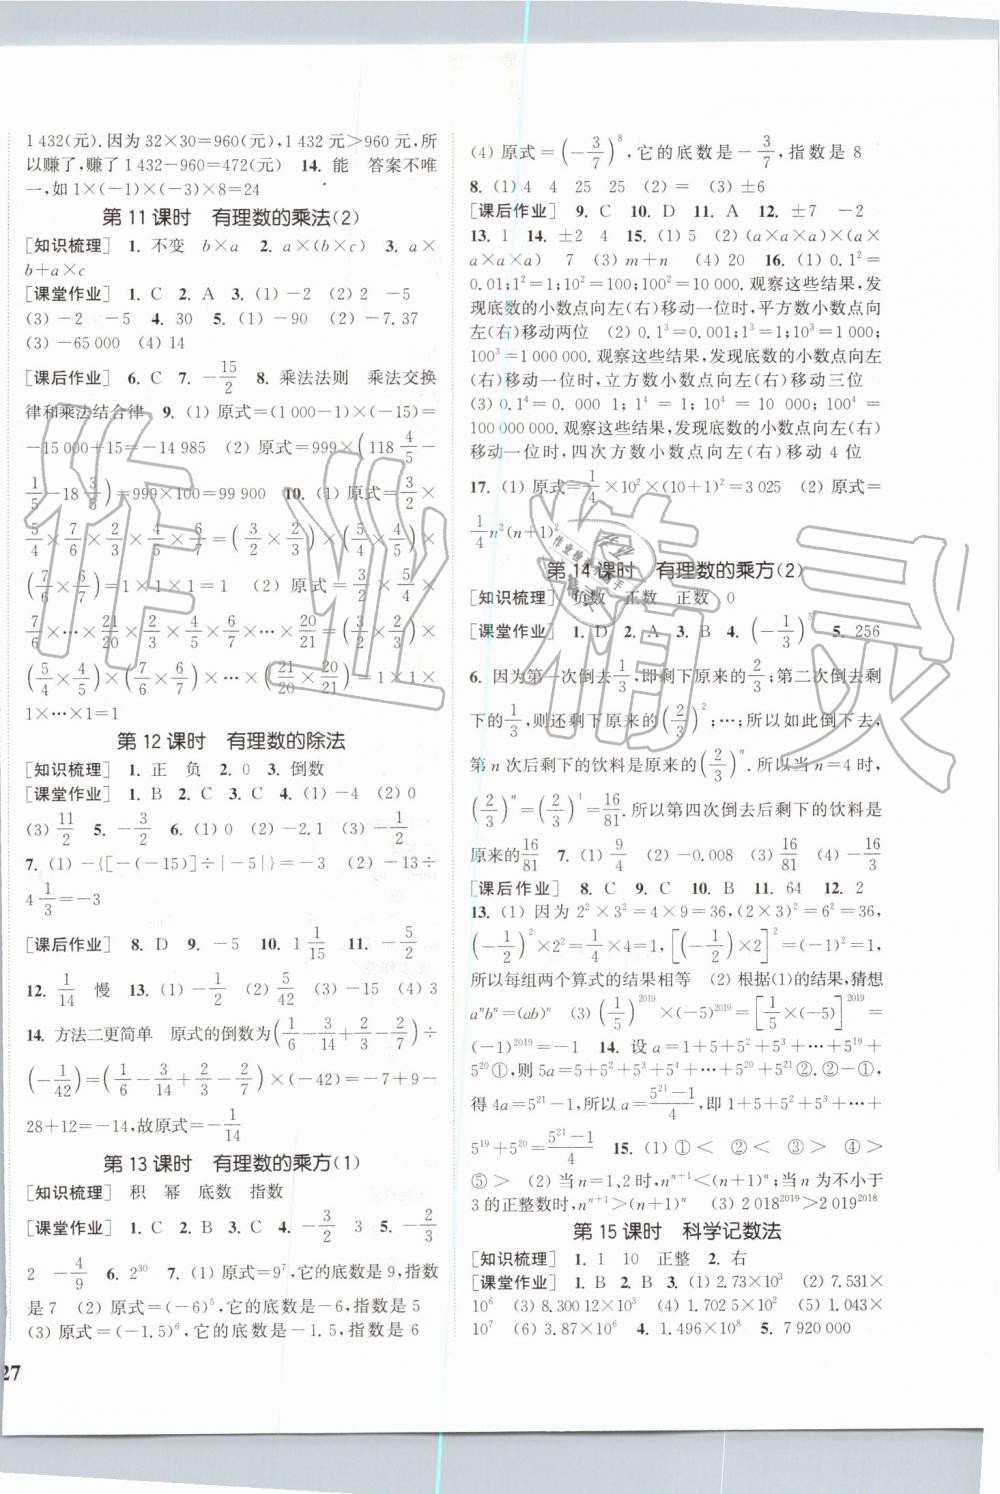 1 432(元). 因为 32×30=960(元), 1 432 元>960 元, 所
以赚了, 赚了 1 432-960=472(元)  14. 能  答案不唯
一, 如 1×(-1)×(-3)×8=24
第 11 课时  有理数的乘法(2)
[知识梳理]  1. 不变  b×a  2. a×(b×c)  3. a×
b+a×c
[课堂作业]  1. C  2. A  3. (1) -2  (2) 2  -5
(3) -2  -5  4. 30  5. (1) -90  (2) -7.37
(3) -65 000  (4) 14
[课后作业]  6. C  7. -15/2  8. 乘法法则  乘法交换
律和乘法结合律  9. (1) 原式=(1 000-1)×(-15)=
-15 000+15=-14 985  (2) 原式=999×(118 4/5 -
1/5 -18 3/5)=999×100=99 900  10. (1) 原式=3/2×
5/4×7/6×2/3×4/5×6/7=(3/2×2/3)×(5/4×4/5)×
(7/6×6/7)=1  (2) 原式=3/2×5/4×
7/6×…×21/20×2/3×4/5×6/7×…×20/21=(3/2×2/3)×
(5/4×4/5)×(7/6×6/7)×…×(21/20×20/21)=1×1×
1×…×1=1
第 12 课时  有理数的除法
[知识梳理]  1. 正  负  2. 0  3. 倒数
[课堂作业]  1. B  2. C  3. C  4. (1) -4  (2) 0
(3) 11/2  5. -3/2  6. (1) 0  (2) -2.1  (3) -1/2
7. (1) -{[-(-15)]÷|-5|}=-3  (2) -13÷
4 1/3=-3
[课后作业]  8. D  9. -5  10. 1 1/15  11. -5/2
12. 1/14  慢  13. (1) -1/2  (2) 5/42  (3) -15  (4) 3
14. 方法二更简单  原式的倒数为(1/6-3/14+2/3-2/7)÷
(-1/42)=(1/6-3/14+2/3-2/7)×(-42)=-7+9-
28+12=-14, 故原式=-1/14
第 13 课时  有理数的乘方(1)
[知识梳理]  积  幂  底数  指数
[课堂作业]  1. C  2. B  3. C  4. -3/2  3  5. -2/3
2  -4/9  6. 2^30  7. (1) 原式=9^7, 它的底数是 9, 指数
是 7  (2) 原式=(-6)^5, 它的底数是-6, 指数是 5
(3) 原式=(-1.5)^6, 它的底数是-1.5, 指数是 6
27
(4) 原式=(-3/7)^8, 它的底数是-3/7, 指数是 8
8. (1) 4  4  25  25  (2) =  (3) ±6
[课后作业]  9. C  10. D  11. A  12. ±7  -2
13. 1  14. ±2  4  15. (1) 5  (2) (a×a×a)×(a×
a×a×a)  7  (3) m+n  (4) 20  16. (1) 0.1^2=
0.01; 1^2=1; 10^2=100; 100^2=10 000. 观察这些结果, 发
现底数的小数点向左(右)移动一位时, 平方数小数点向
左(右)移动两位  (2) 0.1^3=0.001; 1^3=1; 10^3=1 000;
100^3=1 000 000. 观察这些结果, 发现底数的小数点向左
(右)移动一位时, 立方数小数点向左(右)移动三位
(3) 0.1^4=0.000 1; 1^4=1; 10^4=10 000; 100^4=
100 000 000. 观察这些结果, 发现底数的小数点向左(右)
移动一位时, 四次方数小数点向左(右)移动 4 位
17. (1) 原式=1/4×10^2×(10+1)^2=3 025  (2) 原式=
1/4 n^2(n+1)^2
第 14 课时  有理数的乘方(2)
[知识梳理]  负数  正数  正数  0
[课堂作业]  1. D  2. A  3. B  4. (-1/3)  5. 256
6. 因为第一次倒去1/3, 即剩下原来的2/3; 第二次倒去剩
下的1/3, 则还剩下原来的(2/3)^2; …; 所以如此倒下去,
第 n 次后剩下的饮料是原来的(2/3)^n. 所以当 n=4 时,
(2/3)^n=(2/3)^4=16/81. 所以第四次倒去后剩下的饮料是
原来的16/81  7. (1) 9/4  (2) -0.008  (3) 16/81  (4) -16/3
[课后作业]  8. C  9. C  10. B  11. 64  12. 2
13. (1) 因为 2^2×3^2=4×9=36, (2×3)^2=6^2=36,
(-1/2)^2×2^2=1/4×4=1, [(-1/2)×2]^2=(-1)^2=1,
所以每组两个算式的结果相等  (2) 根据(1)的结果, 猜想
a^n b^n=(ab)^n  (3) (1/5)^2019×(-5)^2019=[1/5×(-5)]^2019=
(-1)^2019=-1  14. 设 a=1+5+5^2+5^3+…+5^19+
5^20①, 则 5a=5+5^2+5^3+…+5^20+5^21②. ②-①,
得 4a=5^21-1, 所以 a=(5^21-1)/4, 即 1+5+5^2+5^3+…+
5^19+5^20=(5^21-1)/4  15. (1) ①<  ②<  ③>  ④>
⑤>  (2) 当 n=1,2 时, n^(n+1)<(n+1)^n; 当 n 为不小于
3 的正整数时, n^(n+1)>(n+1)^n  (3) 2 018^2019>2 019^2018
第 15 课时  科学记数法
[知识梳理]  1. 1  10  正整  2. 右
[课堂作业]  1. B  2. B  3. (1) 2.73×10^3  (2) 7.531×
10^6  (3) 8.300 12×10^3  (4) 1.702 5×10^4  (5) 1.043×
10^7  (6) 3.87×10^6  4. 1.496×10^8  5. 7 920 000
作业精灵